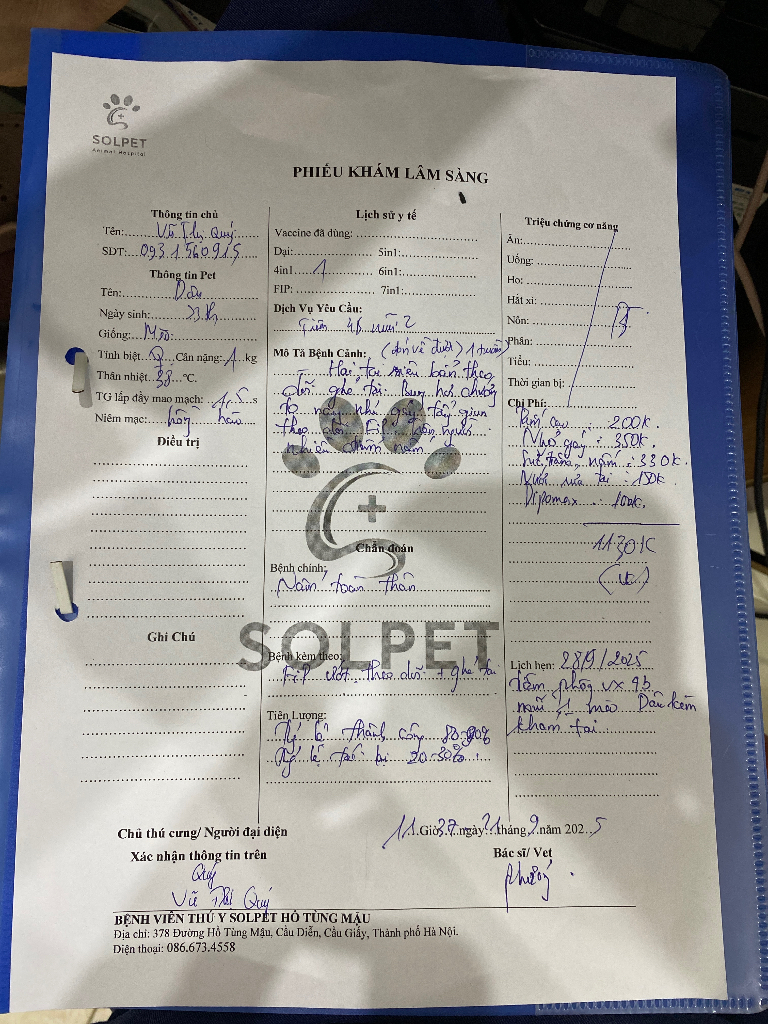 SOLPET
Animal Hospital
PHIẾU KHÁM LÂM SÀNG
Thông tin chủ
Tên: Vũ Thị Quý
SDT: 0931560915
Thông tin Pet
Tên: Dâu
Ngày sinh:
Giống: Mèo
Tính biệt ♀ Cân nặng: 1 kg
Thân nhiệt 38 °C.
TG lấp đầy mao mạch: 1,5 s
Niêm mạc: hồng hào
Điều trị
Ghi Chú
Lịch sử y tế
Vaccine đã dùng:
Dại: 5in1:
4in1 1 6in1:
FIP: 7in1:
Dịch Vụ Yêu Cầu:
Tiêm 4b mũi 2
Mô Tả Bệnh Cảnh: (đón về dưới 1 tuần)
- Hai tai nhiều bẩn theo
dõi ghẻ tai. Bụng hơi chướng
to
theo dõi FIP.
nhiễm nấm
Chẩn đoán
Bệnh chính:
Nấm toàn thân
SOLPET
Bệnh kèm theo:
FIP ướt theo dõi + ghẻ tai
Tiên Lượng:
Tỷ lệ thành công 80-90%
Tỷ lệ thất bại 20-30%
Triệu chứng cơ năng
Ăn:
Uống:
Ho:
Hắt xì:
Nôn: BT
Phân:
Tiểu:
Thời gian bị:
Chi Phí:
200k.
Nhỏ gáy : 350k.
nấm : 330k.
Nước rửa tai : 150k.
Dipomax : 100k.
1130K
Lịch hẹn: 28/9/2025
Tiêm phòng vx 4b
mũi mèo Dâu kèm
khám lại
Chủ thú cưng/ Người đại diện
Xác nhận thông tin trên
Quý
Vũ Thị Quý
11 Giờ 37 ngày 21 tháng 9 năm 2025
Bác sĩ/ Vet
Phương
BỆNH VIỆN THÚ Y SOLPET HỒ TÙNG MẬU
Địa chỉ: 378 Đường Hồ Tùng Mậu, Cầu Diễn, Cầu Giấy, Thành phố Hà Nội.
Điện thoại: 086.673.4558